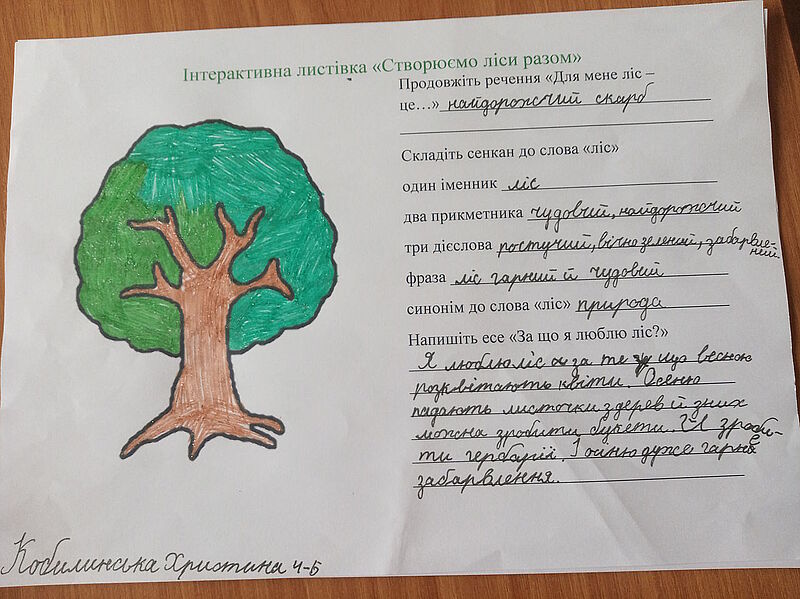 Інтерактивна листівка «Створюємо ліси разом»
Продовжіть речення «Для мене ліс –
це…» найдорожчий скарб
Складіть сенкан до слова «ліс»
один іменник ліс
два прикметника чудовий, найдорожчий
три дієслова ростучий, вічно зелений, забарвле-
ний
фраза ліс гарний й чудовий
синонім до слова «ліс» природа
Напишіть есе «За що я люблю ліс?»
Я люблю ліс за те що весною
розквітають квіти. Осеню
падають листочки з дерев й з них
можна зробити букети. І зроби-
ти гербарій. І осіню дуже гарне
забарвлення.
Кобилинська Христина 4-Б